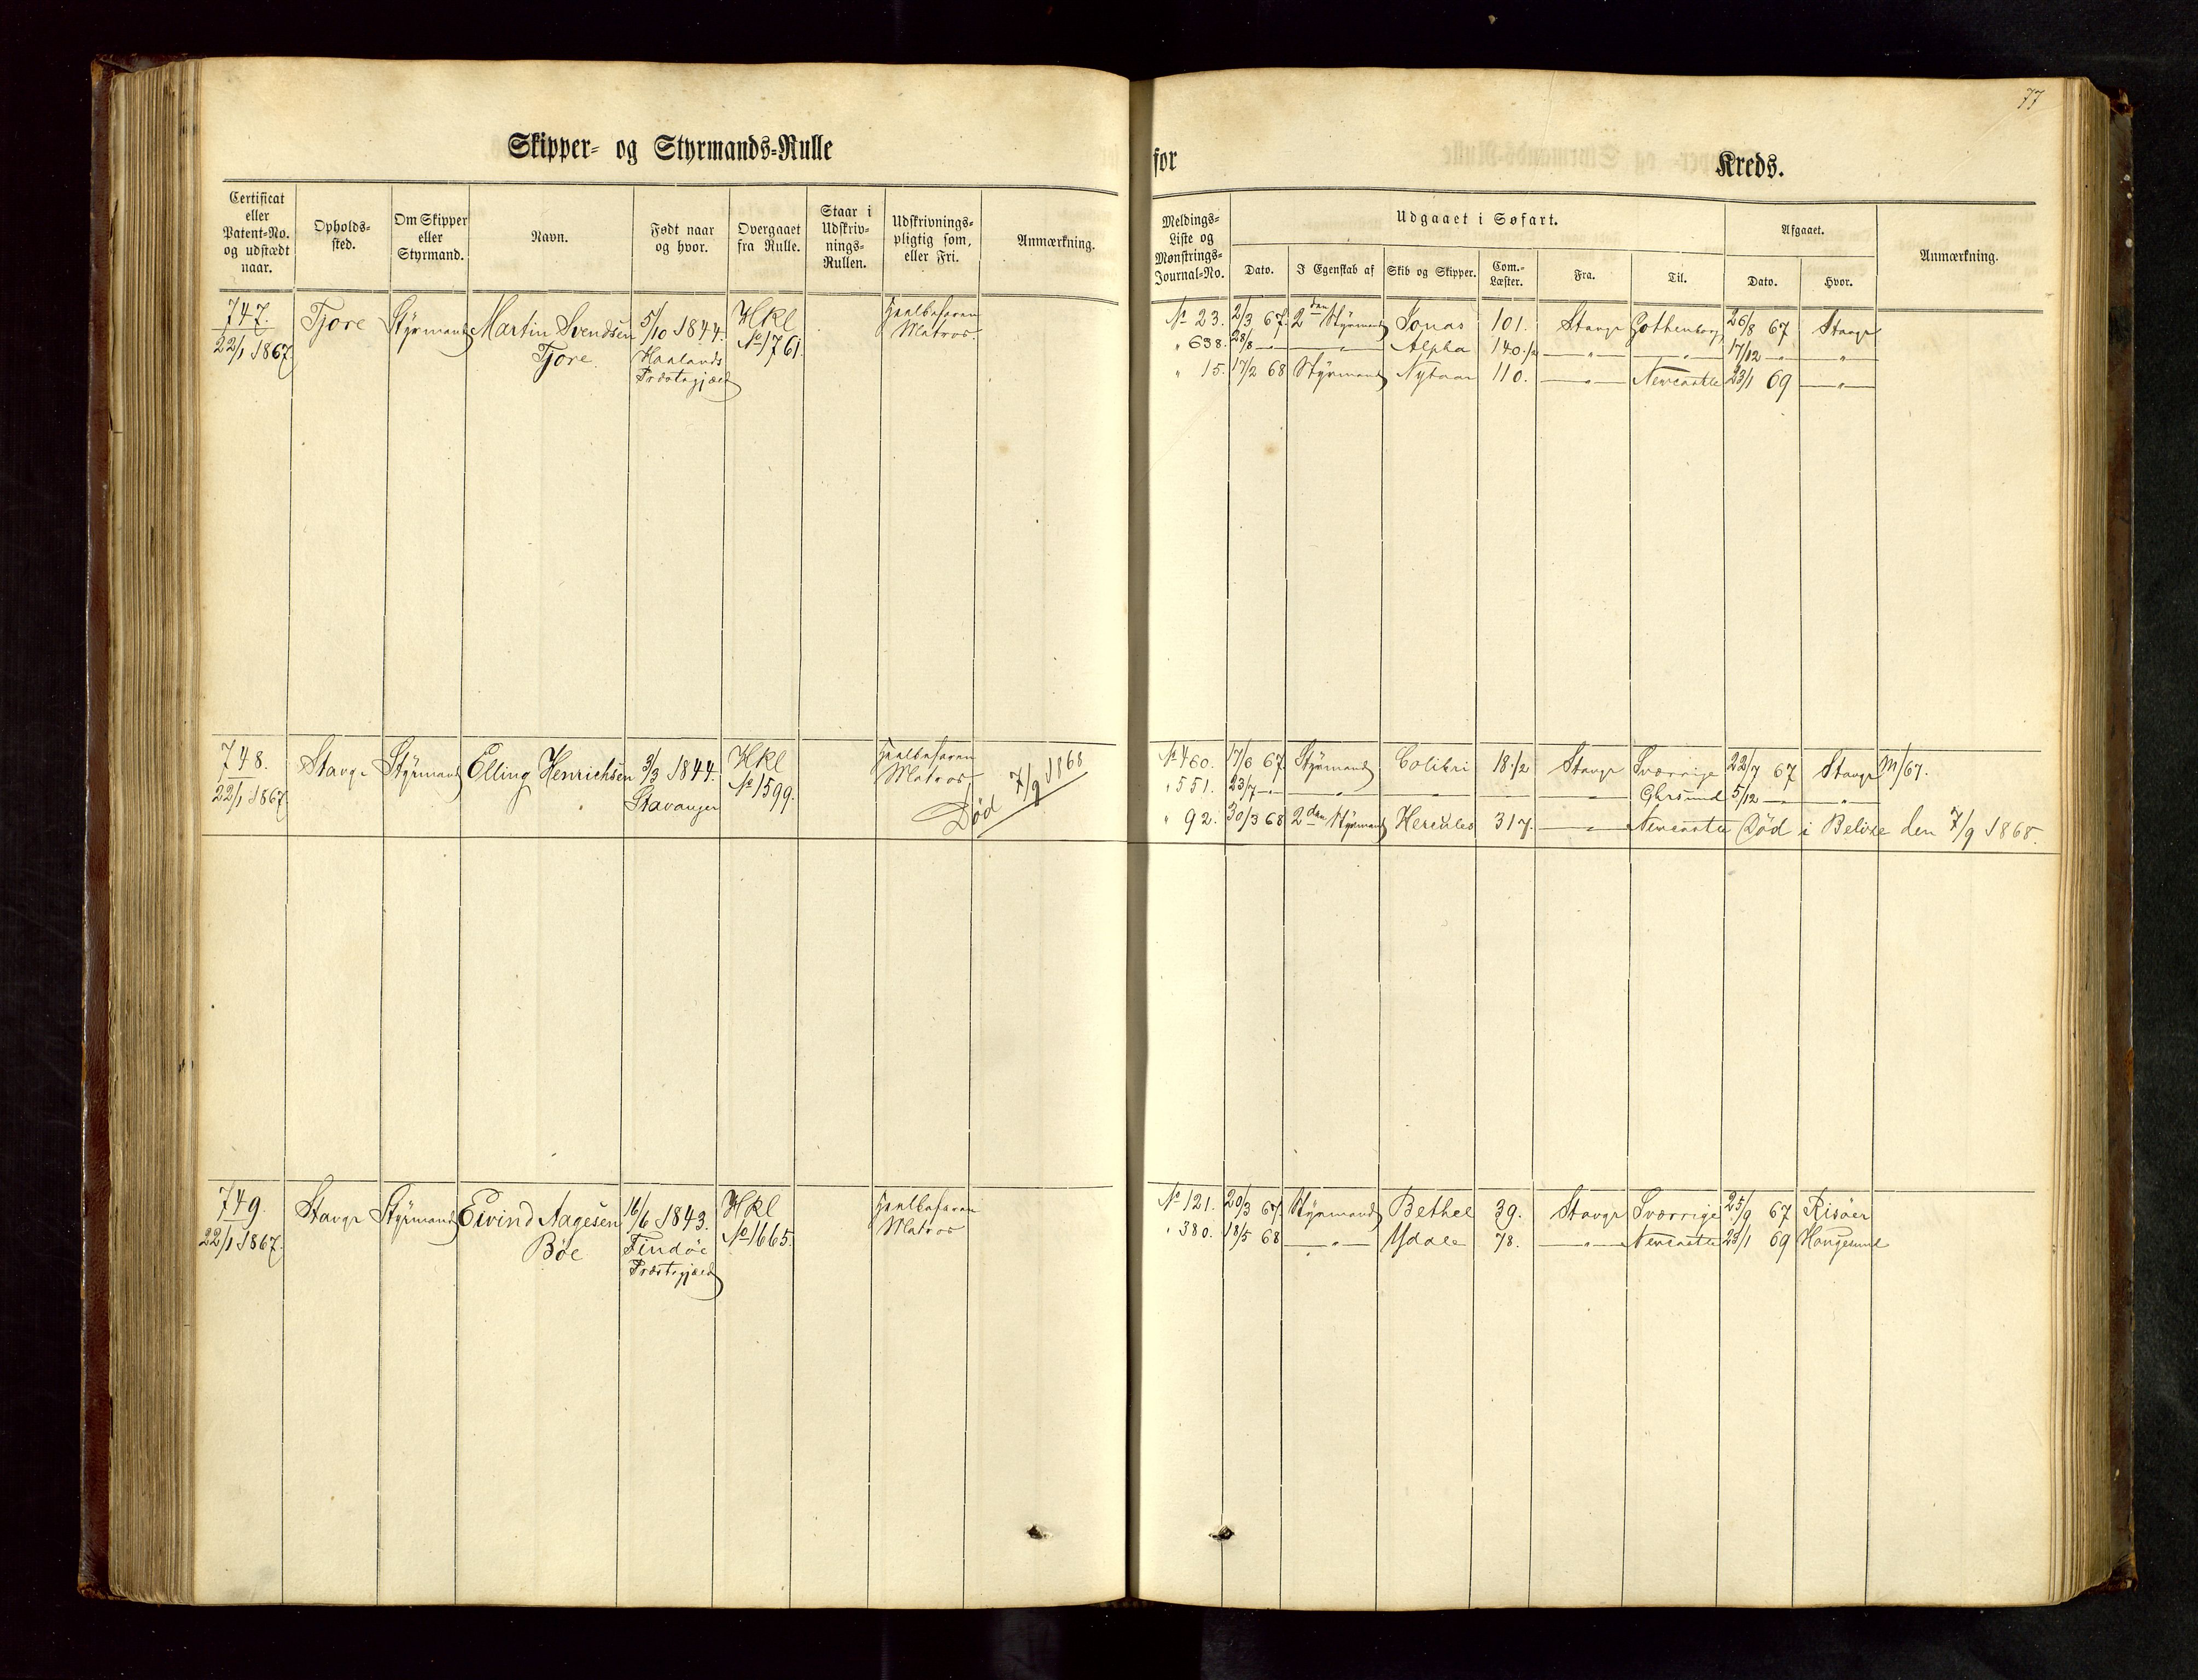 77
Skipper- og Styrmands-Rulle
for Kreds.
Certificat eller Patent-No. og udstædt naar.
Opholds-sted.
Om Skipper eller Styrmand.
Navn.
Født naar og hvor.
Overgaaet fra Rulle.
Staar i Udskriv-nings-Rullen.
Udskrivnings-pligtig som, eller Fri.
Anmærkning.
Meldings-Liste og Mønstrings-Journal-No.
Udgaaet i Søfart.
Dato. I Egenskab af Skib og Skipper. Com.-Læster. Fra. Til.
Afgaaet.
Dato. Hvor.
Anmærkning.
747. Tjore Styrmand Martin Svendsen 5/10 1844. Hkl Heelbefaren
22/1 1867. Tjore. Haalands No 1761. Matros.
Præstegjæld
No 23. 2/3 67. 2den Styrmand Jonas 101. Stavgr Gothenborg 26/8 67 Stavgr
" 638. 28/8 — — " — Alpha 140 1/2 — " — — " — 17/12 — " — " —
" 15. 17/2 68 Styrmand Nytaar 110. — " — Newcastle 23/1 69 — " —
748. Stavgr Styrmand Elling Henrichsen 3/3 1844. Hkl Heelbefaren
22/1 1867. Stavanger No 1599. Matros
Død 7/9 1868
No 460. 17/6 67 Styrmand Colibri 18 1/2 Stavgr Sverrige 22/7 67 Stavgr M/67.
" 551. 23/7 — " — — " — — " — — " — Ghrsund 5/12 — " —
" 92. 30/3 68 2den Styrmand Hercules 317. — " — Newcastle Død i Belize den 7/9 1868.
749. Stavgr Styrmand Eivind Aagesen 16/6 1843. Hkl Heelbefaren
22/1 1867. Böe Findöe No 1665. Matros
Præstegjæld
No 121. 20/3 67 Styrmand Bethel 39. Stavgr Sverrige 25/9 67 Risöer
" 380. 18/5 68 — " — Ydale 78. — " — Newcastle 23/1 69 Haugesund